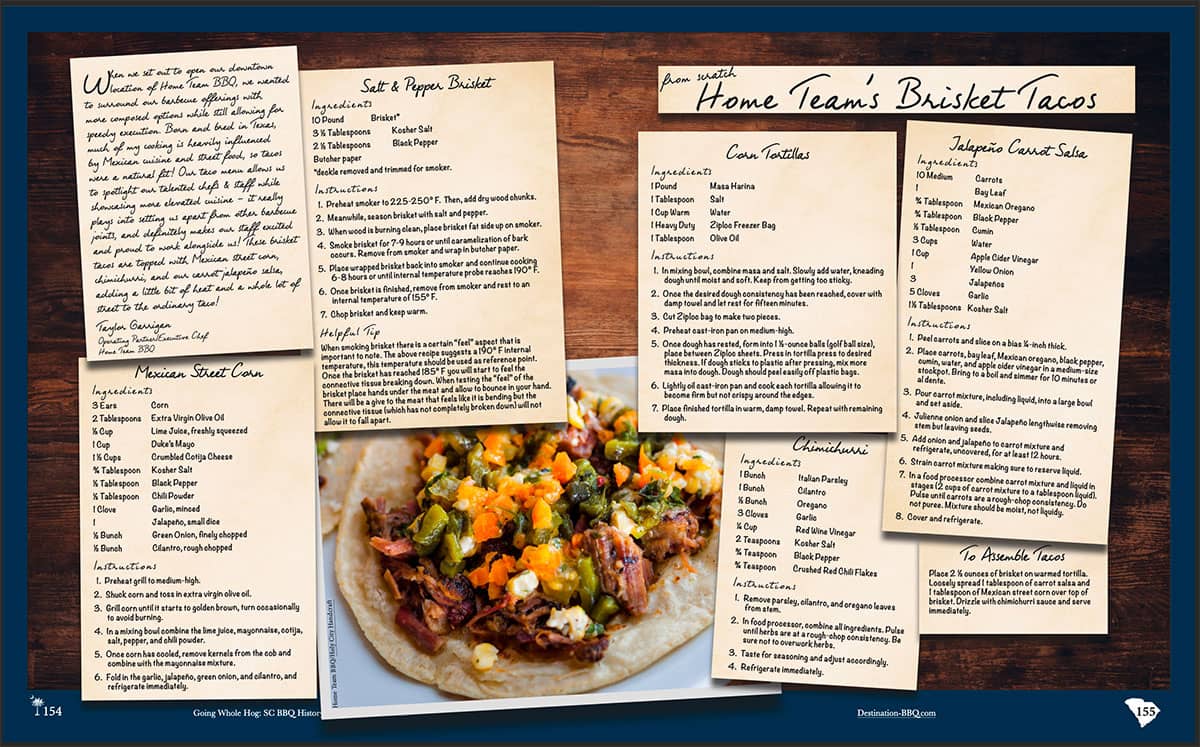 When we set out to open our downtown
location of Home Team BBQ, we wanted
to surround our barbecue offerings with
more composed options while still allowing for
speedy execution. Born and bred in Texas,
much of my cooking is heavily influenced
by Mexican cuisine and street food, so tacos
were a natural fit! Our taco menu allows us
to spotlight our talented chefs & staff while
showcasing more elevated cuisine – it really
plays into setting us apart from other barbecue
joints, and definitely makes our staff excited
and proud to work alongside us! These brisket
tacos are topped with Mexican street corn,
chimichurri, and our carrot jalapeño salsa,
adding a little bit of heat and a whole lot of
street to the ordinary taco!
Taylor Garrigan
Operating Partner/Executive Chef
Home Team BBQ
Mexican Street Corn
Ingredients
3 Ears Corn
2 Tablespoons Extra Virgin Olive Oil
Cup Lime Juice, freshly squeezed
1 Cup Duke's Mayo
1 ½ Cups Crumbled Cotija Cheese
¾ Tablespoon Kosher Salt
½ Tablespoon Black Pepper
½ Tablespoon Chili Powder
1 Clove Garlic, minced
1 Jalapeño, small dice
½ Bunch Green Onion, finely chopped
½ Bunch Cilantro, rough chopped
Instructions
1. Preheat grill to medium-high.
2. Shuck corn and toss in extra virgin olive oil.
3. Grill corn until it starts to golden brown, turn occasionally
to avoid burning.
4. In a mixing bowl combine the lime juice, mayonnaise, cotija,
salt, pepper, and chili powder.
5. Once corn has cooled, remove kernels from the cob and
combine with the mayonnaise mixture.
6. Fold in the garlic, jalapeño, green onion, and cilantro, and
refrigerate immediately.
Salt & Pepper Brisket
Ingredients
10 Pound Brisket*
3 ½ Tablespoons Kosher Salt
2 ½ Tablespoons Black Pepper
Butcher paper
*deckle removed and trimmed for smoker.
Instructions
1. Preheat smoker to 225-250° F. Then, add dry wood chunks.
2. Meanwhile, season brisket with salt and pepper.
3. When wood is burning clean, place brisket fat side up on smoker.
4. Smoke brisket for 7-9 hours or until caramelization of bark
occurs. Remove from smoker and wrap in butcher paper.
5. Place wrapped brisket back into smoker and continue cooking
6-8 hours or until internal temperature probe reaches 190° F.
6. Once brisket is finished, remove from smoker and rest to an
internal temperature of 155° F.
7. Chop brisket and keep warm.
Helpful Tip
When smoking brisket there is a certain "feel" aspect that is
important to note. The above recipe suggests a 190° F internal
temperature, this temperature should be used as reference point.
Once the brisket has reached 185° F you will start to feel the
connective tissue breaking down. When testing the "feel" of the
brisket place hands under the meat and allow to bounce in your hand.
There will be a give to the meat that feels like it is bending but the
connective tissue (which has not completely broken down) will not
allow it to fall apart.
Home Team BBQ/Holy City Handcraft
154
Going Whole Hog: SC BBQ History
from scratch
Home Team's Brisket Tacos
Corn Tortillas
Ingredients
1 Pound Masa Harina
1 Tablespoon Salt
1 Cup Warm Water
1 Heavy Duty Ziploc Freezer Bag
1 Tablespoon Olive Oil
Instructions
1. In mixing bowl, combine masa and salt. Slowly add water, kneading
dough until moist and soft. Keep from getting too sticky.
2. Once the desired dough consistency has been reached, cover with
damp towel and let rest for fifteen minutes.
3. Cut Ziploc bag to make two pieces.
4. Preheat cast-iron pan on medium-high.
5. Once dough has rested, form into 1 ½-ounce balls (golf ball size),
place between Ziploc sheets. Press in tortilla press to desired
thickness. If dough sticks to plastic after pressing, mix more
masa into dough. Dough should peel easily off plastic bags.
6. Lightly oil cast-iron pan and cook each tortilla allowing it to
become firm but not crispy around the edges.
7. Place finished tortilla in warm, damp towel. Repeat with remaining
dough.
Chimichurri
Ingredients
1 Bunch Italian Parsley
1 Bunch Cilantro
½ Bunch Oregano
3 Cloves Garlic
¼ Cup Red Wine Vinegar
2 Teaspoons Kosher Salt
¾ Teaspoon Black Pepper
¾ Teaspoon Crushed Red Chili Flakes
Instructions
1. Remove parsley, cilantro, and oregano leaves
from stem.
2. In food processor, combine all ingredients. Pulse
until herbs are at a rough-chop consistency. Be
sure not to overwork herbs.
3. Taste for seasoning and adjust accordingly.
4. Refrigerate immediately.
Jalapeño Carrot Salsa
Ingredients
10 Medium Carrots
1 Bay Leaf
¾ Tablespoon Mexican Oregano
¾ Tablespoon Black Pepper
½ Tablespoon Cumin
3 Cups Water
1 Cup Apple Cider Vinegar
1 Yellow Onion
3 Jalapeños
5 Cloves Garlic
1 ½ Tablespoons Kosher Salt
Instructions
1. Peel carrots and slice on a bias ¼-inch thick.
2. Place carrots, bay leaf, Mexican oregano, black pepper,
cumin, water, and apple cider vinegar in a medium-size
stockpot. Bring to a boil and simmer for 10 minutes or
al dente.
3. Pour carrot mixture, including liquid, into a large bowl
and set aside.
4. Julienne onion and slice Jalapeño lengthwise removing
stem but leaving seeds.
5. Add onion and jalapeño to carrot mixture and
refrigerate, uncovered, for at least 12 hours.
6. Strain carrot mixture making sure to reserve liquid.
7. In a food processor combine carrot mixture and liquid in
stages (2 cups of carrot mixture to a tablespoon liquid).
Pulse until carrots are a rough-chop consistency. Do
not puree. Mixture should be moist, not liquidy.
8. Cover and refrigerate.
To Assemble Tacos
Place 2 ½ ounces of brisket on warmed tortilla.
Loosely spread 1 tablespoon of carrot salsa and
1 tablespoon of Mexican street corn over top of
brisket. Drizzle with chimichurri sauce and serve
immediately.
Destination-BBQ.com
155